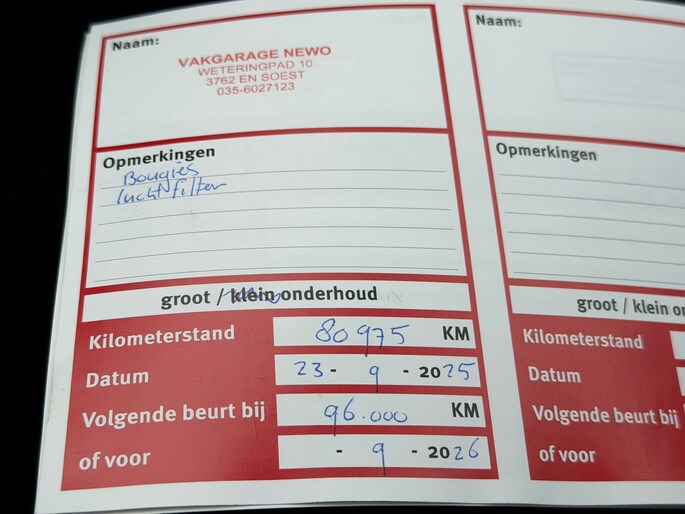 Naam:
VAKGARAGE NEWO
WETERINGPAD 10
3762 EN SOEST
035-6027123
Opmerkingen
Bougies
luchtfilter
groot / klein onderhoud
Kilometerstand 80975 KM
Datum 23 - 9 - 2025
Volgende beurt bij 96.000 KM
of voor - 9 - 2026
Naam:
Opmerkingen
groot / klein on
Kilometerstand
Datum
Volgende beurt bij
of voor